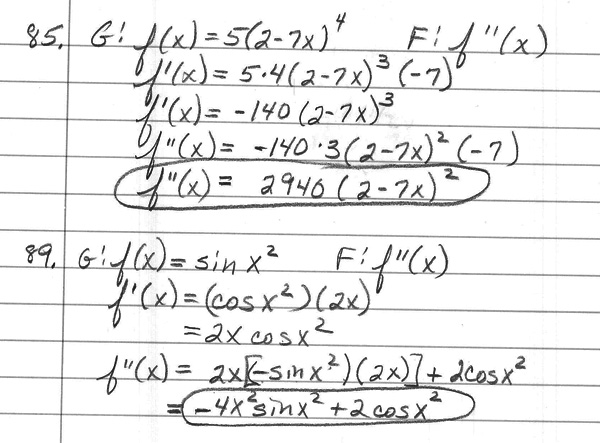 85. G: f(x) = 5(2-7x)⁴ F: f''(x)
f'(x) = 5·4(2-7x)³(-7)
f'(x) = -140(2-7x)³
f''(x) = -140·3(2-7x)²(-7)
f''(x) = 2940(2-7x)²
89. G: f(x) = sin x² F: f''(x)
f'(x) = (cosx²)(2x)
= 2x cosx²
f''(x) = 2x[(-sinx²)(2x)] + 2cosx²
= -4x²sinx² + 2cosx²